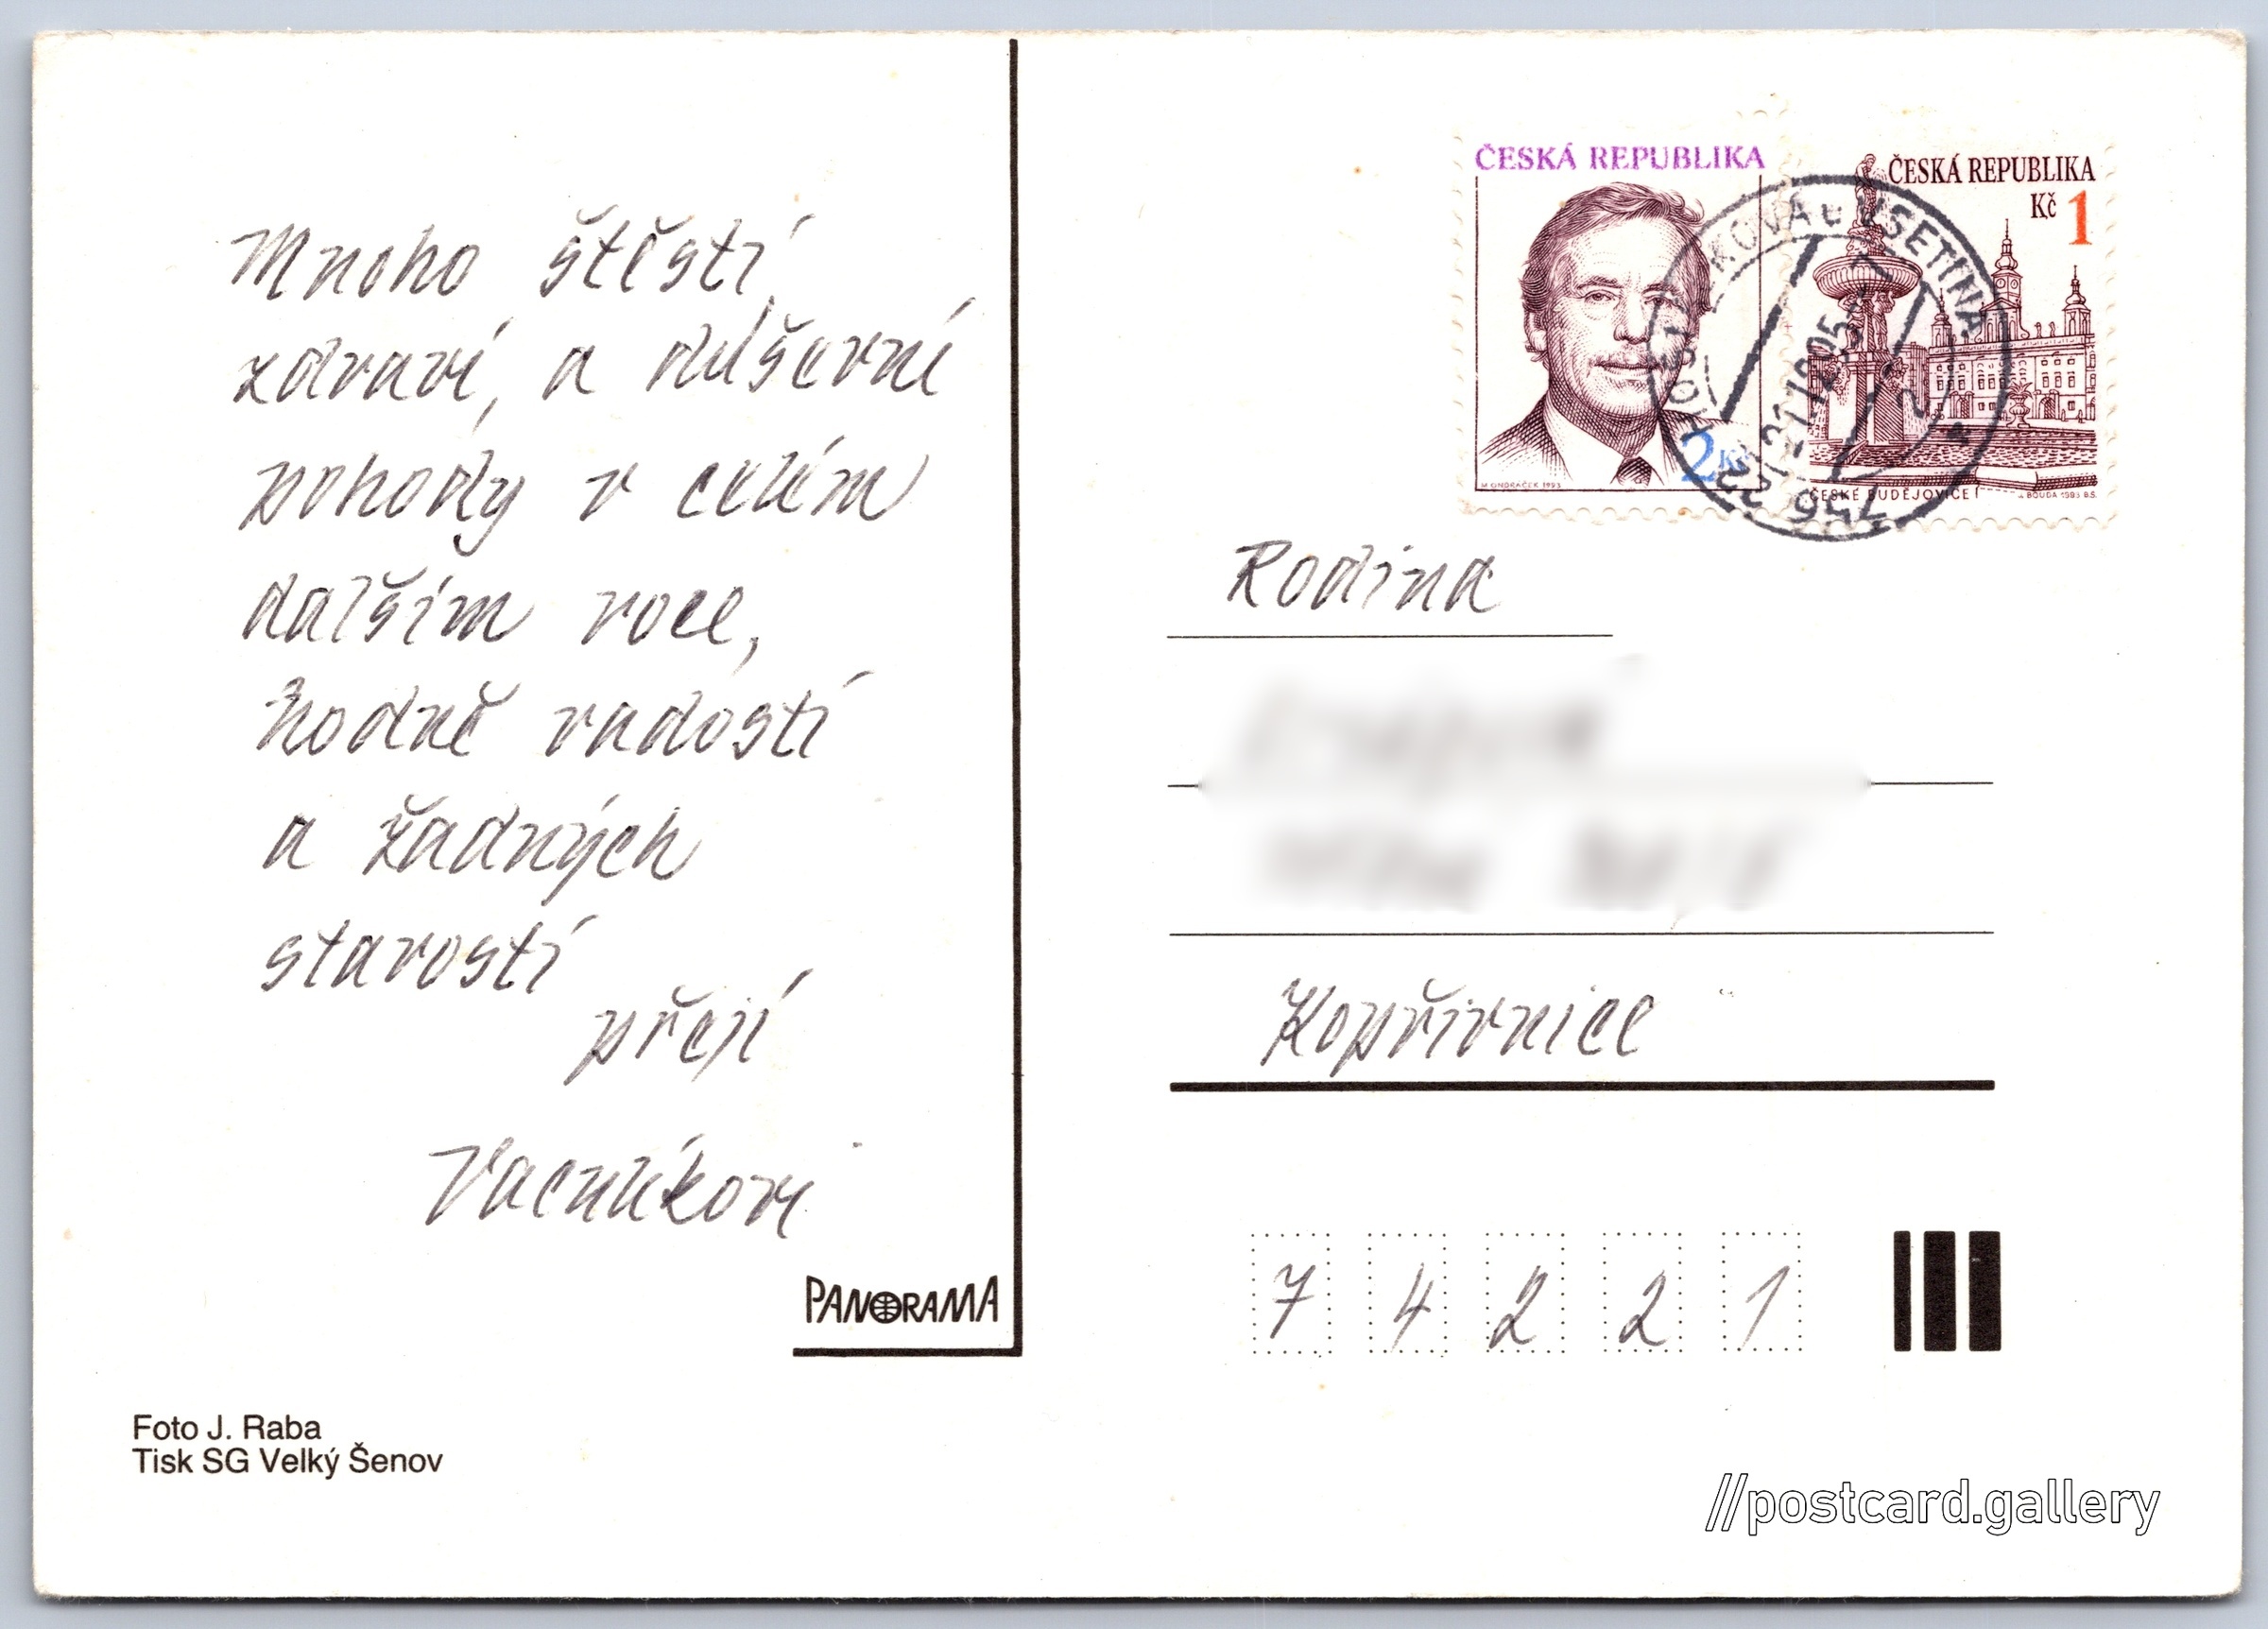 Mnoho štěstí,
zdraví, a duševní
pohody v celém
dalším roce,
hodně radostí
a žádných
starostí
přejí
Vaculíkovi
PANORAMA
Foto J. Raba
Tisk SG Velký Šenov
ČESKÁ REPUBLIKA
2 Kč
M. ONDRÁČEK 1993
ČESKÁ REPUBLIKA
Kč 1
ČESKÉ BUDĚJOVICE
J. BOUDA 1993 B.S.
HOŠŤÁLKOVÁ U VSETÍNA
756 22
Rodina
Kopřivnice
7 4 2 2 1
//postcard.gallery